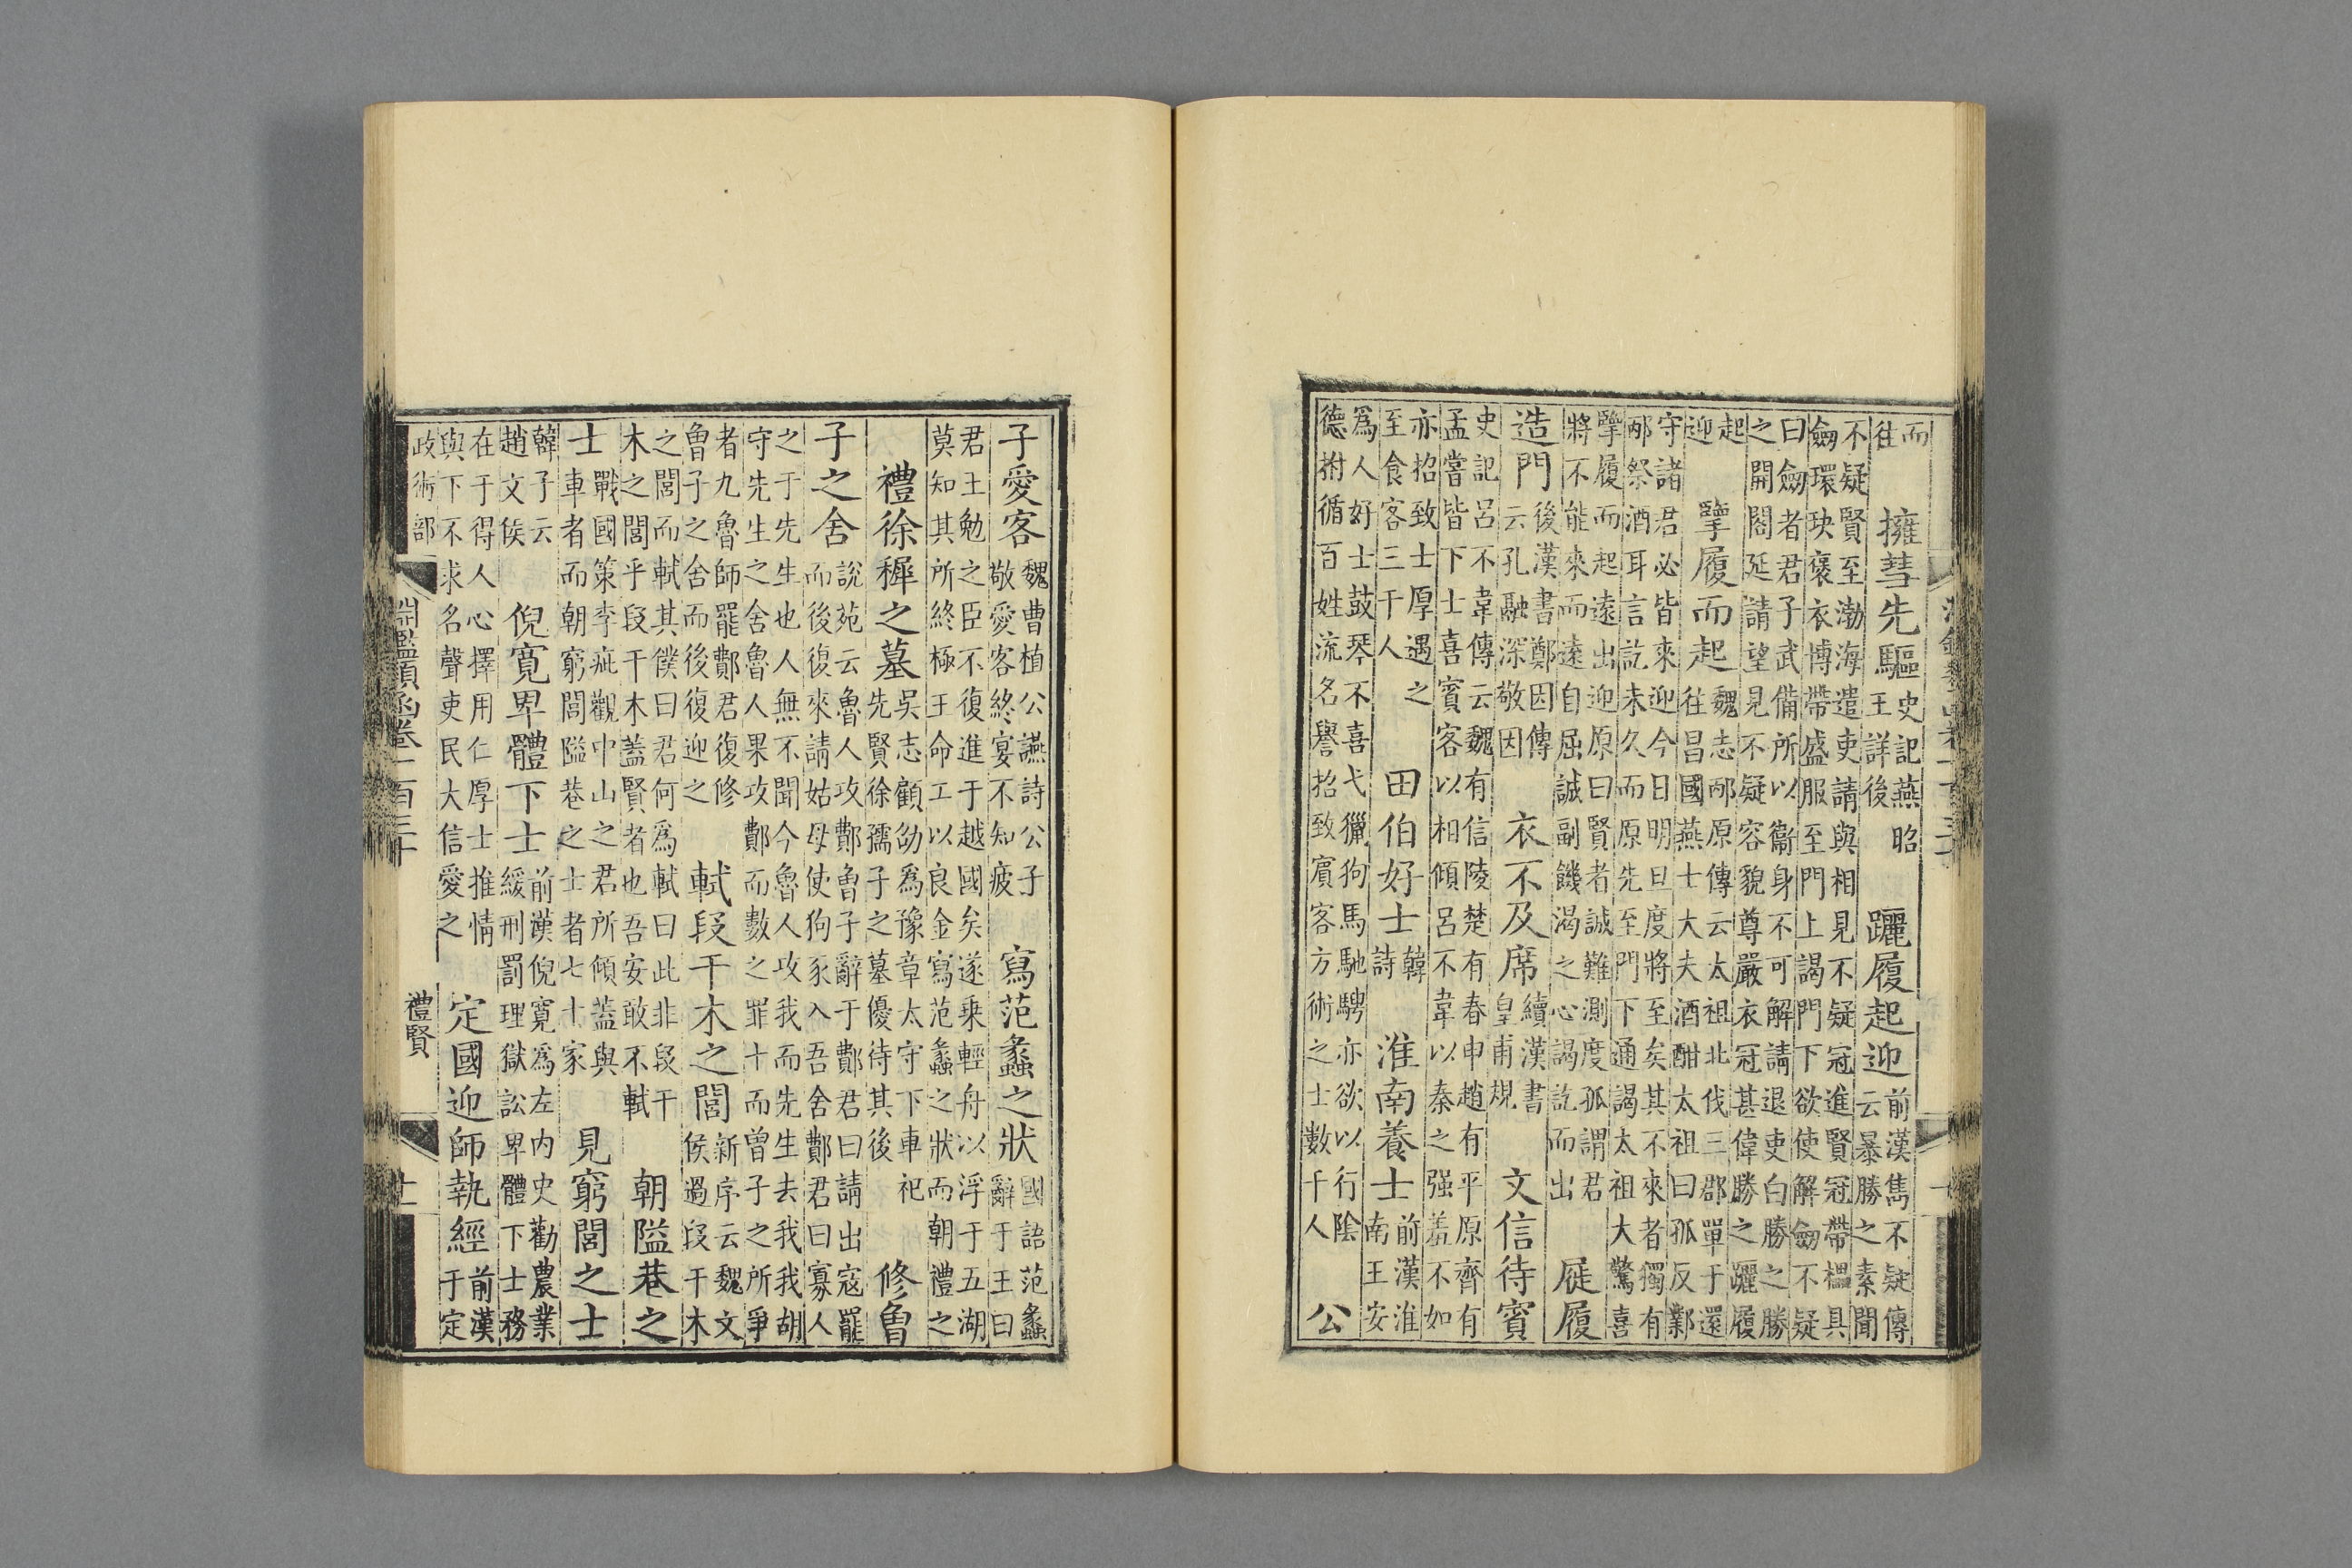 而
往
擁彗先驅
史記燕昭
王詳後
躧履起迎
前漢雋不疑傳
云暴勝之素聞
不疑賢至渤海遣吏請與相見不疑冠進賢冠帶櫑具
劔環玦褒衣博帶盛服至門上謁門下欲使解劔不疑
曰劔者君子武備所以衞身不可解請退吏白勝之勝
之開閤延請望見不疑容貌尊嚴衣冠甚偉勝之躧履
起
迎
擥履而起
魏志邴原傳云太祖北伐三郡單于還
往昌國燕士大夫酒酣太祖曰孤反鄴
守諸君必皆來迎今日明旦度將至矣其不來者獨有
邴祭酒耳言訖未久而原先至門下通謁太祖大驚喜
擥履而起遠出迎原曰賢者誠難測度孤謂君
將不能來而遠自屈誠副饑渴之心謁訖而出
屣履
造門
後漢書鄭因傳
云孔融深敬因
衣不及席
續漢書
皇甫規
文信待賓
史記呂不韋傳云魏有信陵楚有春申趙有平原齊有
孟嘗皆下士喜賓客以相傾呂不韋以秦之强羞不如
亦招致士厚遇之
至食客三千人
田伯好士
韓
詩
淮南養士
前漢淮
南王安
爲人好士鼓琴不喜弋獵狗馬馳騁亦欲以行陰
德拊循百姓流名譽招致賓客方術之士數千人
公
子愛客
魏曹植公讌詩公子
敬愛客終宴不知疲
寫范蠡之狀
國語范蠡
辭于王曰
君王勉之臣不復進于越國矣遂乗輕舟以浮于五湖
莫知其所終極王命工以良金寫范蠡之狀而朝禮之
禮徐穉之墓
吳志顧劭爲豫章太守下車祀
先賢徐孺子之墓優待其後
修魯
子之舍
說苑云魯人攻鄪魯子辭于鄪君曰請出寇罷
而後復來請姑母使狗豕入吾舍鄪君曰寡人
之于先生也人無不聞今魯人攻我而先生去我我胡
守先生之舍魯人果攻鄪而數之罪十而曾子之所爭
者九魯師罷鄪君復修
魯子之舍而後復迎之
軾段干木之閭
新序云魏文
侯過段干木
之閭而軾其僕曰君何爲軾曰此非段干
木之閭乎段干木蓋賢者也吾安敢不軾
朝隘巷之
士
戰國策李疵觀中山之君所傾蓋與
車者而朝窮閭隘巷之士者七十家
見窮閭之士
韓子云
趙文侯
倪寬卑體下士
前漢倪寬爲左内史勸農業
緩刑罰理獄訟卑體下士務
在于得人心擇用仁厚士推情
與下不求名聲吏民大信愛之
定國迎師執經
前漢
于定
政術部
淵鑑類函卷一百三十
禮賢